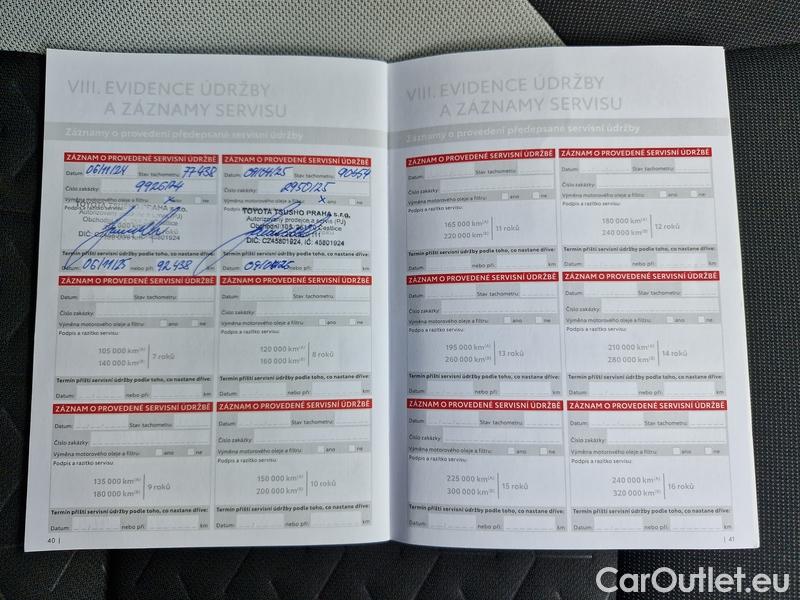 VIII. EVIDENCE ÚDRŽBY
A ZÁZNAMY SERVISU
Záznamy o provedení předepsané servisní údržby
ZÁZNAM O PROVEDENÉ SERVISNÍ ÚDRŽBĚ
Datum: 06/11/24 Stav tachometru: 77438
Číslo zakázky: 9926/24
Výměna motorového oleje a filtru: x ne
Podpis a razítko
DIČ:
Termín příští servisní údržby podle toho, co nastane dříve:
Datum: 06/11/25 nebo při: 92438 km
ZÁZNAM O PROVEDENÉ SERVISNÍ ÚDRŽBĚ
Datum: Stav tachometru:
Číslo zakázky: 2950/25
Výměna motorového oleje a filtru: x ano ne
TOYOTA TSUSHO PRAHA s.r.o.
Autorizovaný prodejce a servis (PJ)
Obchodní 105, 25170 Čestlice
DIČ: CZ45801924, IČ: 45801924
Termín příští servisní údržby podle toho, co nastane dříve:
Datum: nebo při: km
ZÁZNAM O PROVEDENÉ SERVISNÍ ÚDRŽBĚ
Datum: Stav tachometru:
Číslo zakázky:
Výměna motorového oleje a filtru: ano ne
Podpis a razítko servisu:
105 000 km(A)
140 000 km(B)
7 roků
Termín příští servisní údržby podle toho, co nastane dříve:
Datum: nebo při: km
ZÁZNAM O PROVEDENÉ SERVISNÍ ÚDRŽBĚ
Datum: Stav tachometru:
Číslo zakázky:
Výměna motorového oleje a filtru: ano ne
Podpis a razítko servisu:
120 000 km(A)
160 000 km(B)
8 roků
Termín příští servisní údržby podle toho, co nastane dříve:
Datum: nebo při: km
ZÁZNAM O PROVEDENÉ SERVISNÍ ÚDRŽBĚ
Datum: Stav tachometru:
Číslo zakázky:
Výměna motorového oleje a filtru: ano ne
Podpis a razítko servisu:
135 000 km(A)
180 000 km(B)
9 roků
Termín příští servisní údržby podle toho, co nastane dříve:
Datum: nebo při: km
ZÁZNAM O PROVEDENÉ SERVISNÍ ÚDRŽBĚ
Datum: Stav tachometru:
Číslo zakázky:
Výměna motorového oleje a filtru: ano ne
Podpis a razítko servisu:
150 000 km(A)
200 000 km(B)
10 roků
Termín příští servisní údržby podle toho, co nastane dříve:
Datum: nebo při: km
40 |
VIII. EVIDENCE ÚDRŽBY
A ZÁZNAMY SERVISU
Záznamy o provedení předepsané servisní údržby
ZÁZNAM O PROVEDENÉ SERVISNÍ ÚDRŽBĚ
Datum: Stav tachometru:
Číslo zakázky:
Výměna motorového oleje a filtru: ano ne
Podpis a razítko servisu:
165 000 km(A)
220 000 km(B)
11 roků
Termín příští servisní údržby podle toho, co nastane dříve:
Datum: nebo při: km
ZÁZNAM O PROVEDENÉ SERVISNÍ ÚDRŽBĚ
Datum: Stav tachometru:
Číslo zakázky:
Výměna motorového oleje a filtru: ano ne
Podpis a razítko servisu:
180 000 km(A)
240 000 km(B)
12 roků
Termín příští servisní údržby podle toho, co nastane dříve:
Datum: nebo při: km
ZÁZNAM O PROVEDENÉ SERVISNÍ ÚDRŽBĚ
Datum: Stav tachometru:
Číslo zakázky:
Výměna motorového oleje a filtru: ano ne
Podpis a razítko servisu:
195 000 km(A)
260 000 km(B)
13 roků
Termín příští servisní údržby podle toho, co nastane dříve:
Datum: nebo při: km
ZÁZNAM O PROVEDENÉ SERVISNÍ ÚDRŽBĚ
Datum: Stav tachometru:
Číslo zakázky:
Výměna motorového oleje a filtru: ano ne
Podpis a razítko servisu:
210 000 km(A)
280 000 km(B)
14 roků
Termín příští servisní údržby podle toho, co nastane dříve:
Datum: nebo při: km
ZÁZNAM O PROVEDENÉ SERVISNÍ ÚDRŽBĚ
Datum: Stav tachometru:
Číslo zakázky:
Výměna motorového oleje a filtru: ano ne
Podpis a razítko servisu:
225 000 km(A)
300 000 km(B)
15 roků
Termín příští servisní údržby podle toho, co nastane dříve:
Datum: nebo při: km
ZÁZNAM O PROVEDENÉ SERVISNÍ ÚDRŽBĚ
Datum: Stav tachometru:
Číslo zakázky:
Výměna motorového oleje a filtru: ano ne
Podpis a razítko servisu:
240 000 km(A)
320 000 km(B)
16 roků
Termín příští servisní údržby podle toho, co nastane dříve:
Datum: nebo při: km
| 41
CarOutlet.eu